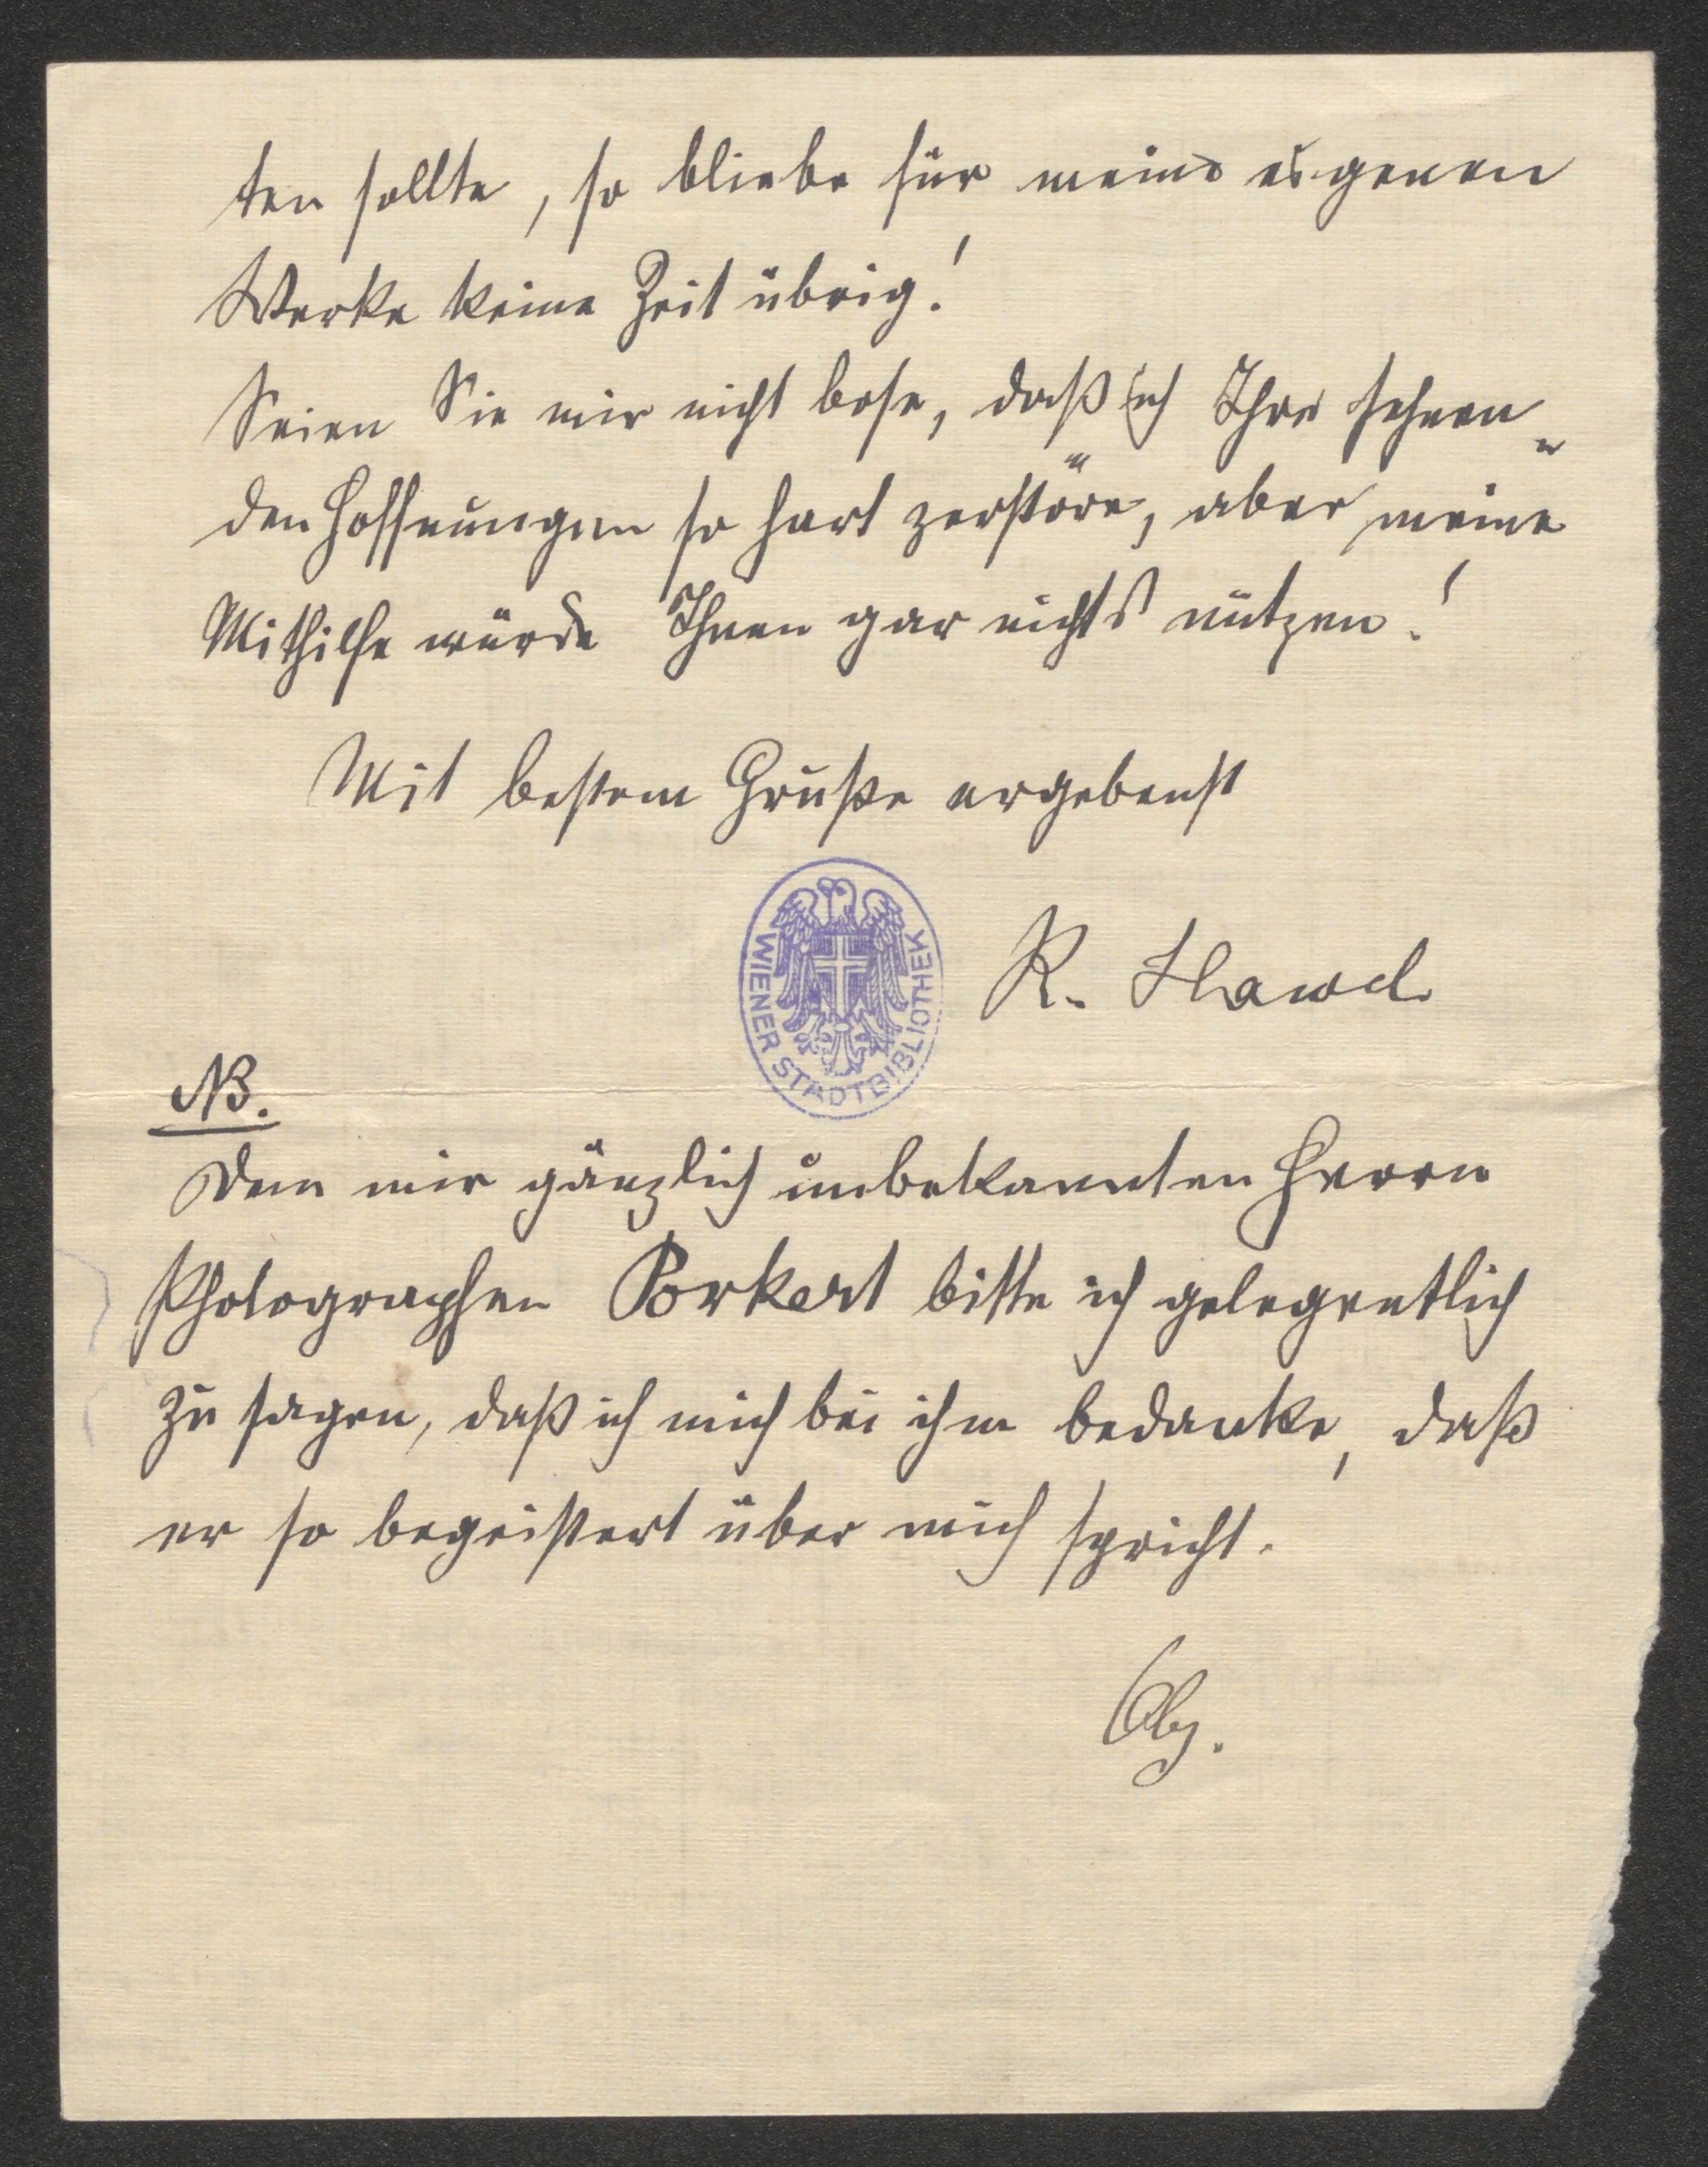 ten sollte, so bliebe für meine eigenen
Werke keine Zeit übrig!
Seien Sie mir nicht böse, daß ich Ihre sehnen-
den Hoffnungen so hart zerstöre, aber meine
Mithilfe würde Ihnen gar nichts nützen!
Mit bestem Gruße ergebenst
R. Hawel
WIENER STADTBIBLIOTHEK
NB.
Dem mir gänzlich unbekannten Herrn
Photographen Porkert bitte ich gelegentlich
zu sagen, daß ich mich bei ihm bedanke, daß
er so begeistert über mich spricht.
Obg.